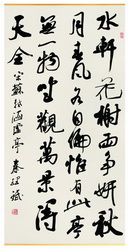 水軒花榭兩争妍秋
月春風各自偏惟有此亭
無一物坐觀萬景得
天全 宋蘇軾涵虚亭